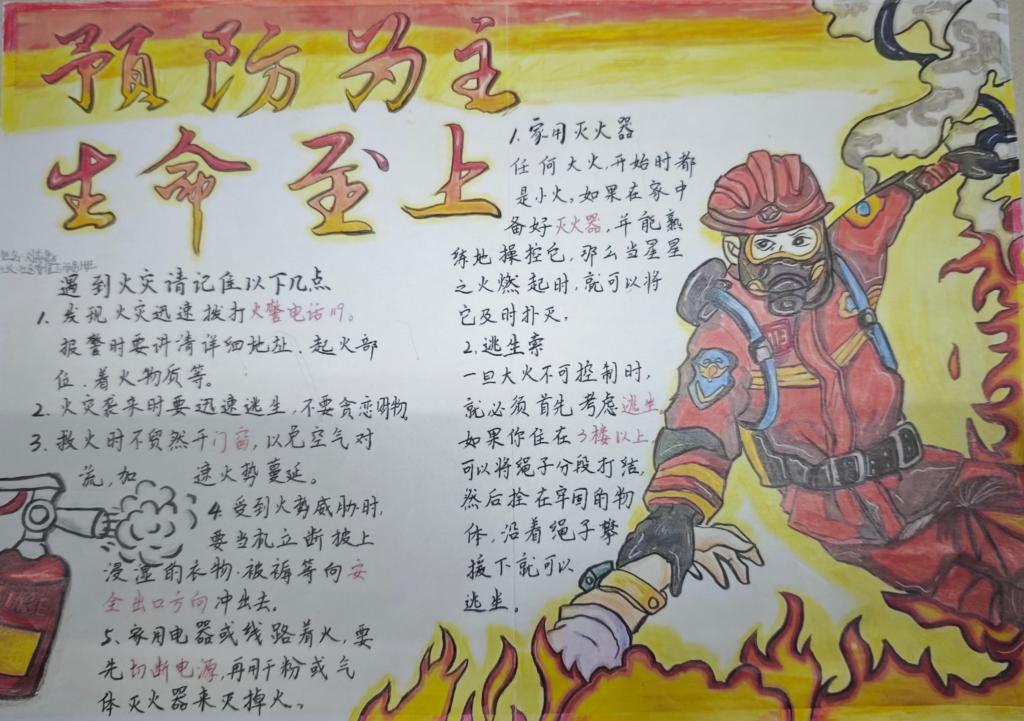 预防为主
生命至上
遇到火灾请记住以下几点
1. 发现火灾迅速拨打火警电话119。
报警时要讲清详细地址、起火部
位、着火物质等。
2. 火灾袭来时要迅速逃生,不要贪恋财物
3. 救火时不贸然开门窗,以免空气对
流,加 速火势蔓延。
4. 受到火势威胁时,
要当机立断披上
浸湿的衣物、被褥等向安
全出口方向冲出去。
5、家用电器或线路着火,要
先切断电源,再用干粉或气
体灭火器来灭掉火。
1. 家用灭火器
任何大火,开始时都
是小火,如果在家中
备好灭火器,并能熟
练地操控它,那么当星星
之火燃起时,就可以将
它及时扑灭。
2、逃生索
一旦大火不可控制时,
就必须首先考虑逃生
如果你住在3楼以上,
可以将绳子分段打结,
然后拴在牢固的物
体,沿着绳子攀
援下就可以
逃生。
113